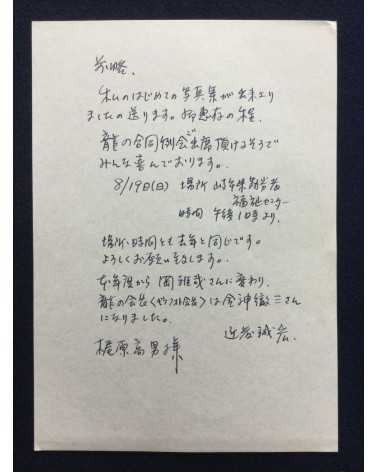 前略.
私のはじめての写真集が出来上り
ましたの送ります。御恵存の程.
龍の合同例会ご出席頂けるそうで
みんな喜んでおります。
8/19日(日) 場所 岐阜県身障者
福祉センター
時間 午后1時より.
場所、時間とも去年と同じです。
よろしくお願い致します。
本年度から 岡雅哉さんに変わり.
龍の会長 は金神徹三さん
になりました。
近藤誠宏.
梶原高男様